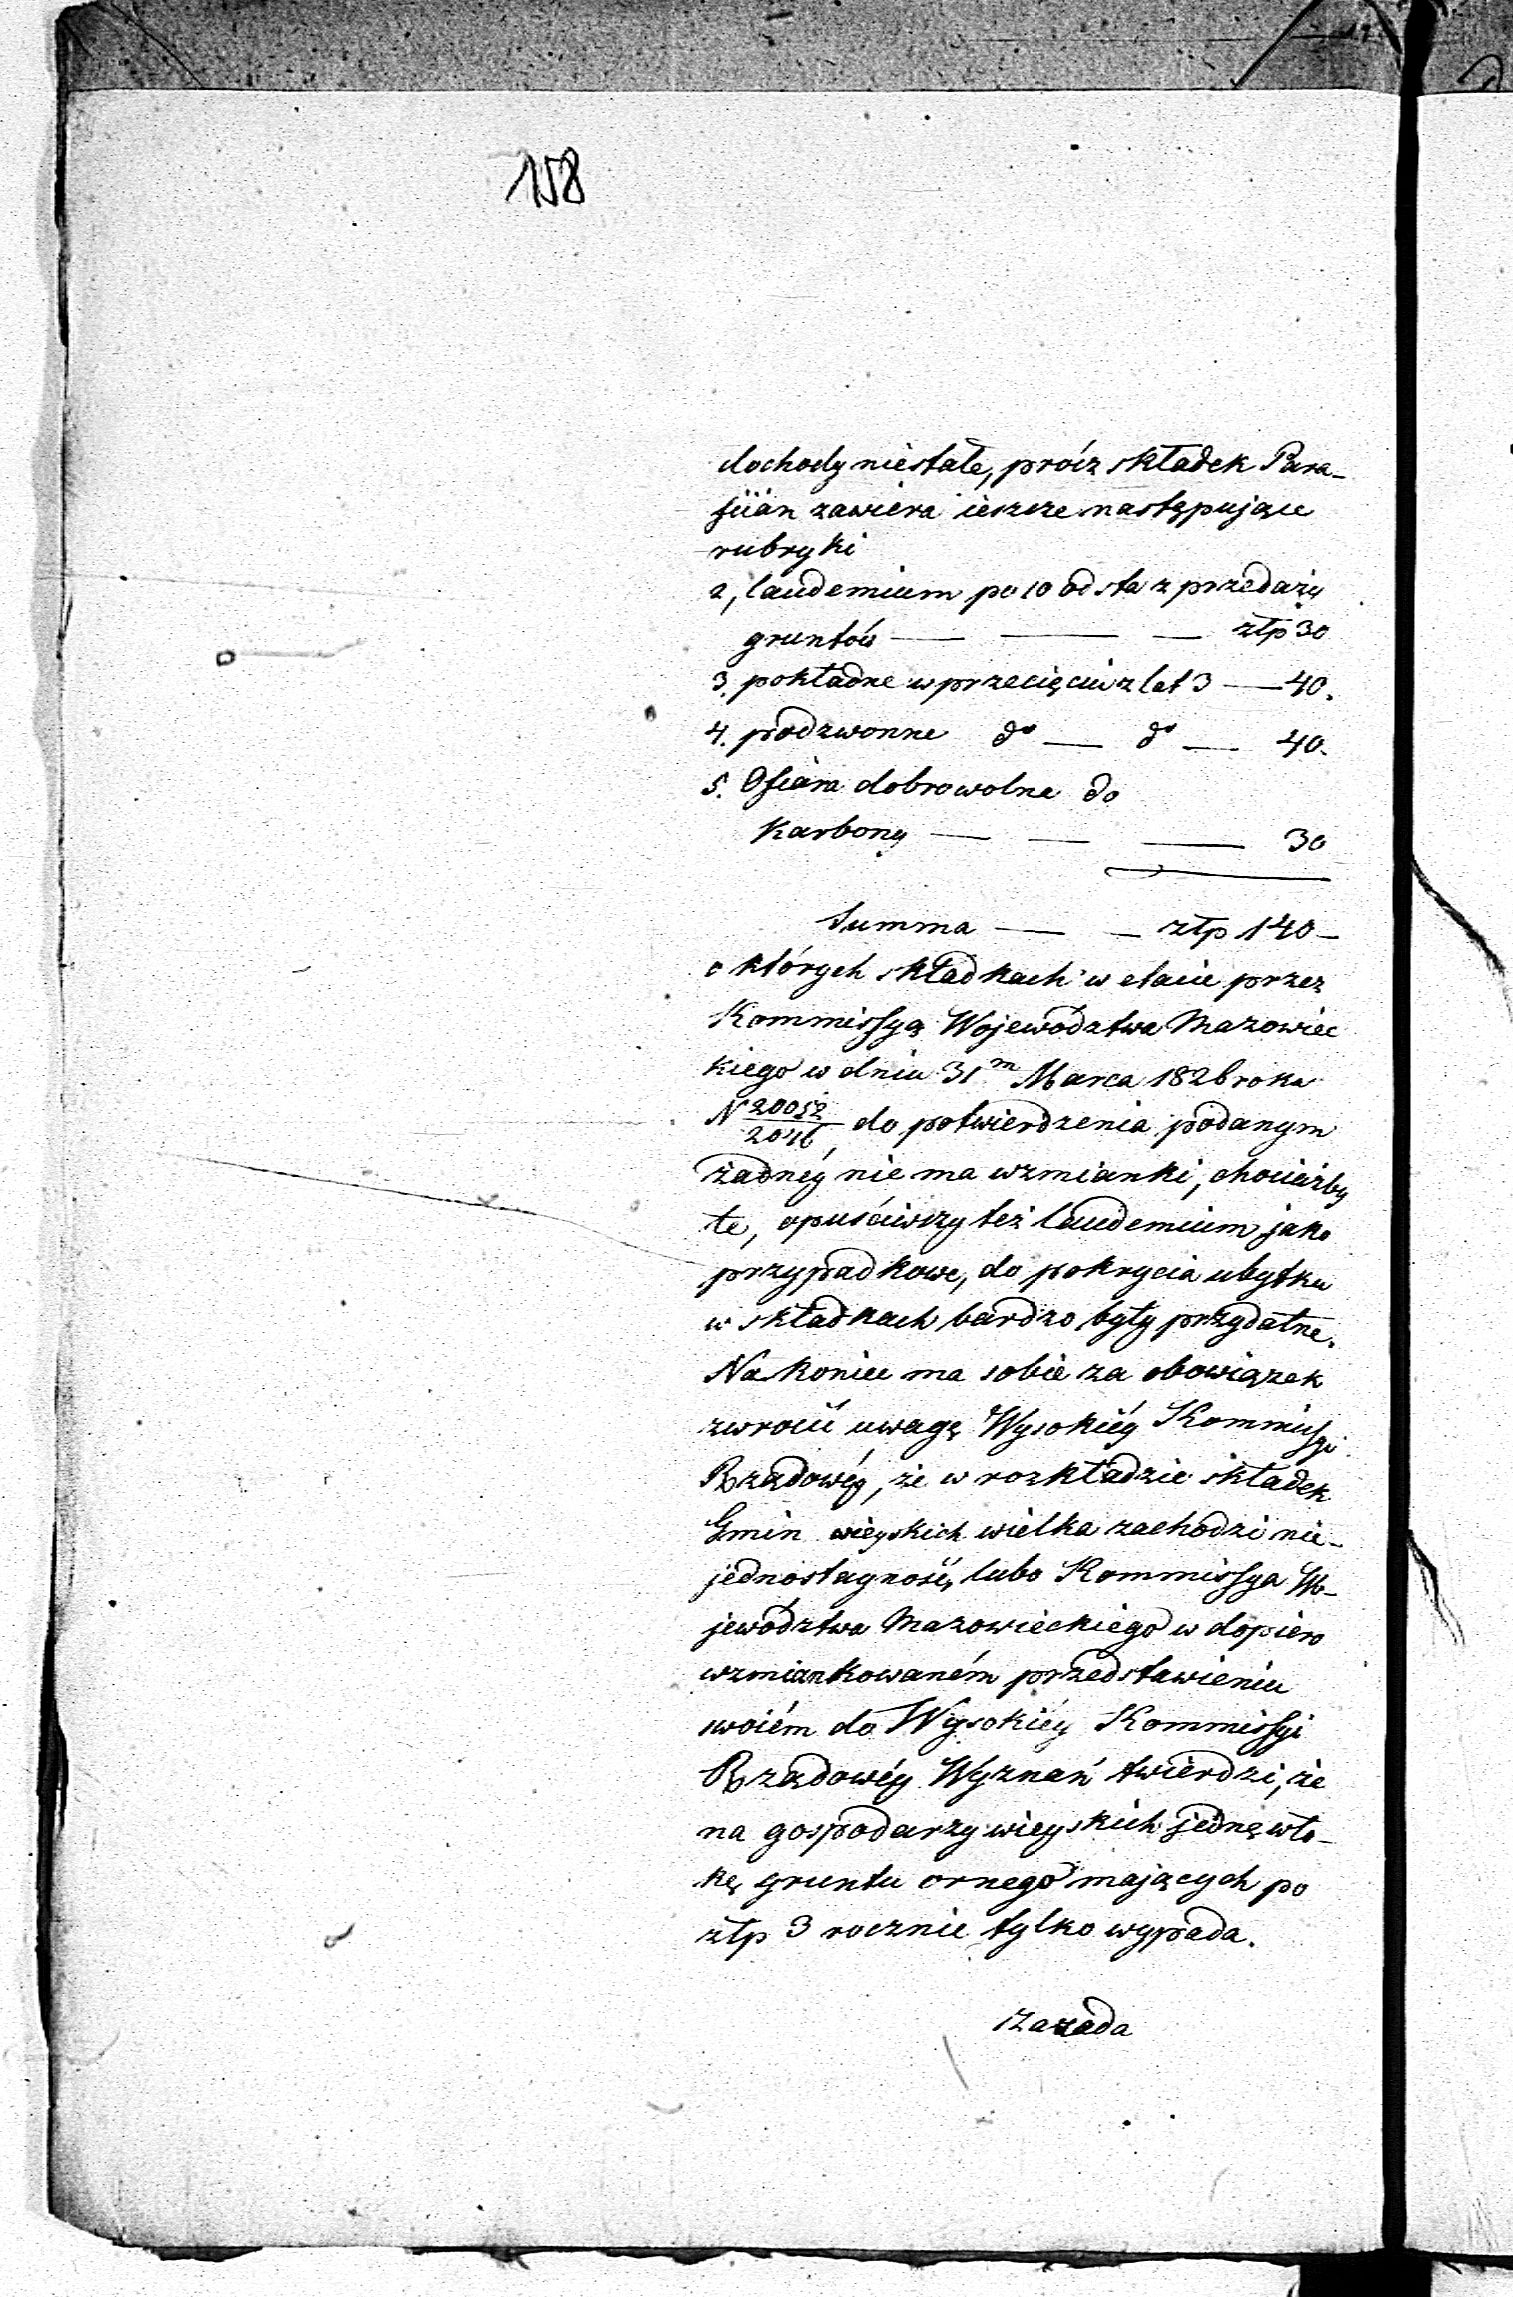 158
dochody niestałe, prócz składek Para-
fiian zawiera ieszcze następujące
rubryki
2, laudemium po 10 od sta z przedaży
gruntów — — — złp 30
3. pokładne w przecięciu z lat 3 — 40.
4. podzwonne do — do — 40.
5. Ofiara dobrowolne do
Karbony — — — 30
Summa — — złp 140 —
o których składkach w etacie przez
Kommissyą Województwa Mazowiec
kiego w dniu 31m Marca 1826 roku
N 20052/2046 do potwierdzenia podanym
żadnéy nie ma wzmianki, chociażby
te, opuściwszy też laudemium jako
przypadkowe, do pokrycia ubytku
w składkach bardzo były przydatne.
Na koniec ma sobie za obowiązek
zwrócić uwagę Wysokiéy Kommissyi
Rządowéy, że w rozkładzie składek
Gmin wieyskich wielka zachodzi nie-
jednostayność, lubo Kommissya Wo-
jewództwa Mazowieckiego w dopiero
wzmiankowaném przedstawieniu
swoiém do Wysokiéy Kommissyi
Rządowéy Wyznań twierdzi, że
na gospodarzy wieyskich jednę wło-
kę gruntu ornego mających po
złp 3 rocznie tylko wypada.
Zasada